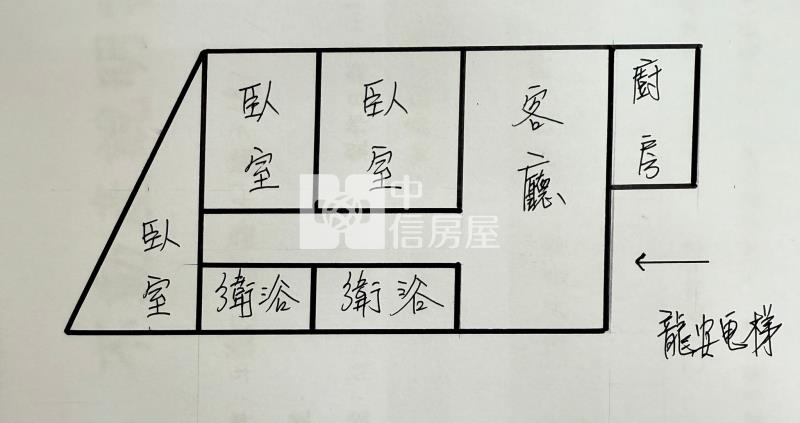 臥室
臥室
客廳
廚房
臥室
衛浴
衛浴
龍安電梯
中信房屋